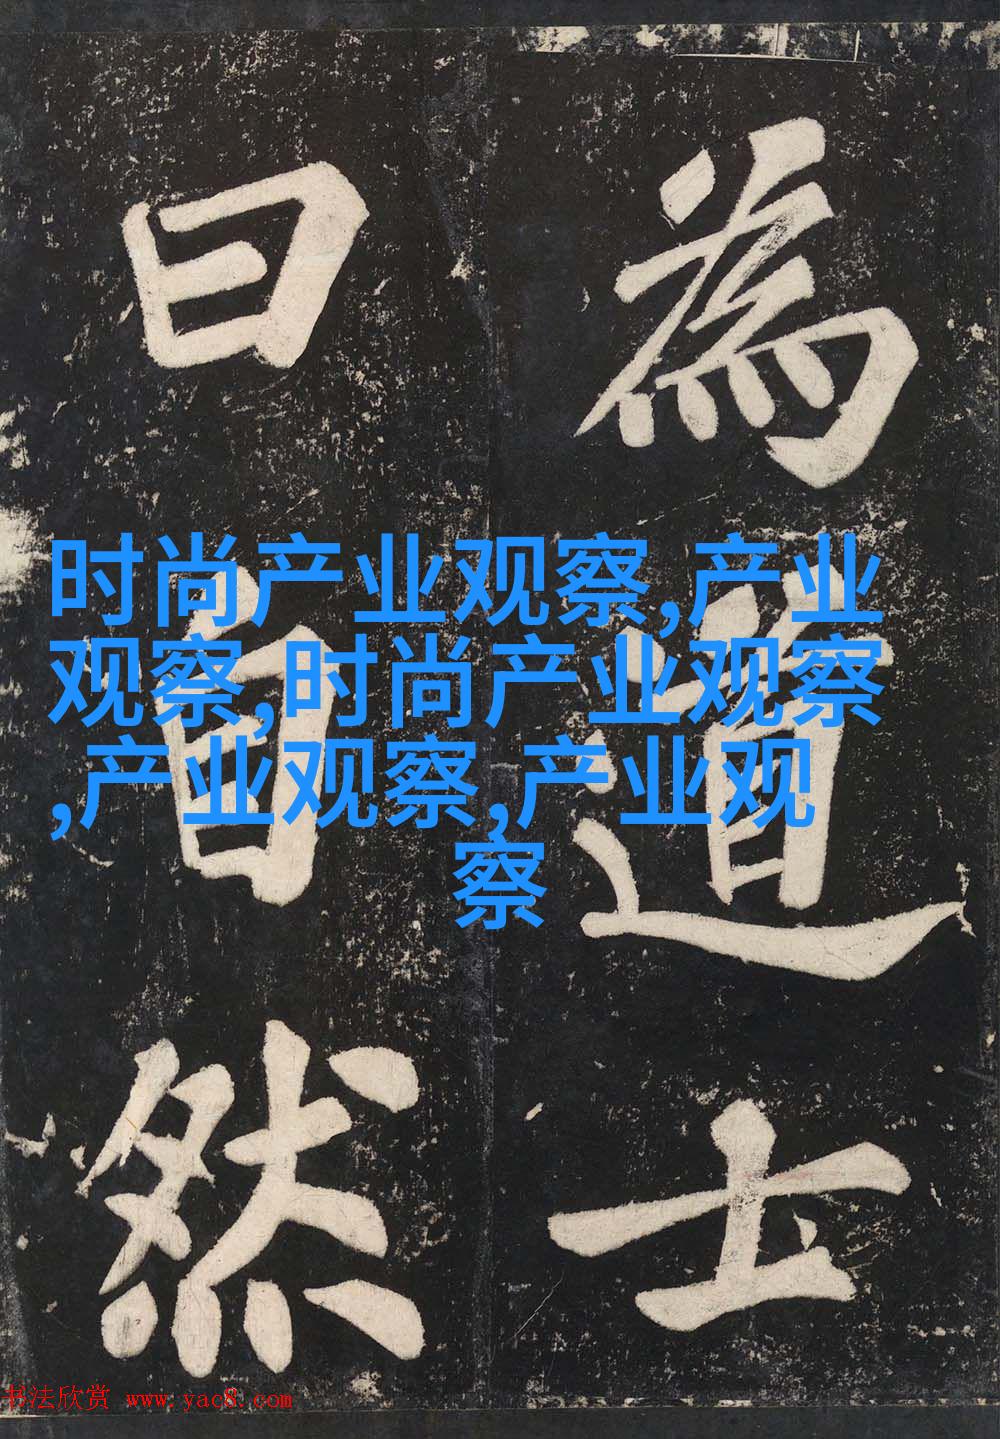 為道士
曰自然
时尚产业观察,产业
观察,时尚产业观察
,产业观察,产业观
察
书法欣赏 www.yac8.com